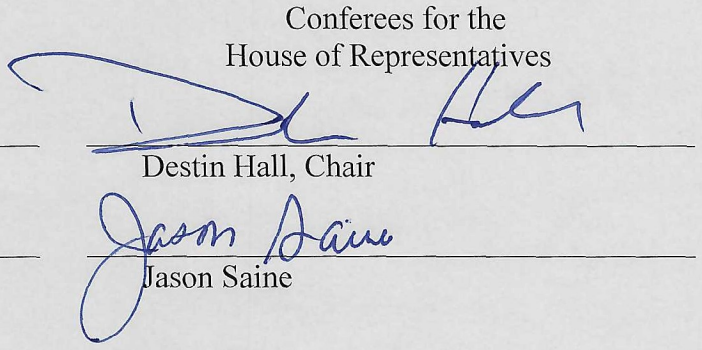 Conferees for the
House of Representatives
D Hall
Destin Hall, Chair
Jason Saine
Jason Saine